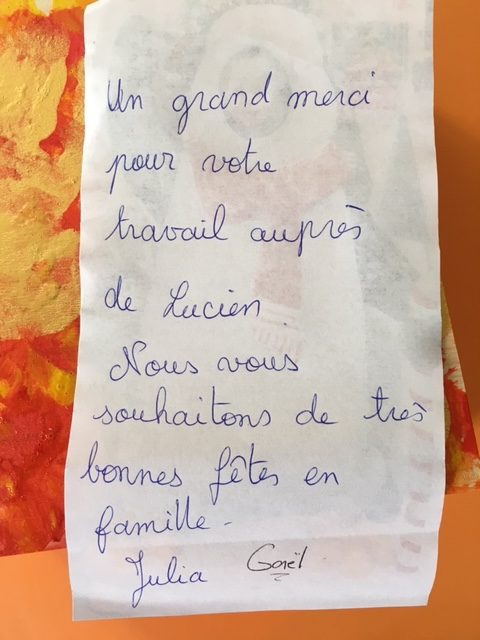 Un grand merci
pour votre
travail auprès
de Lucien.
Nous vous
souhaitons de très
bonnes fêtes en
famille -
Julia